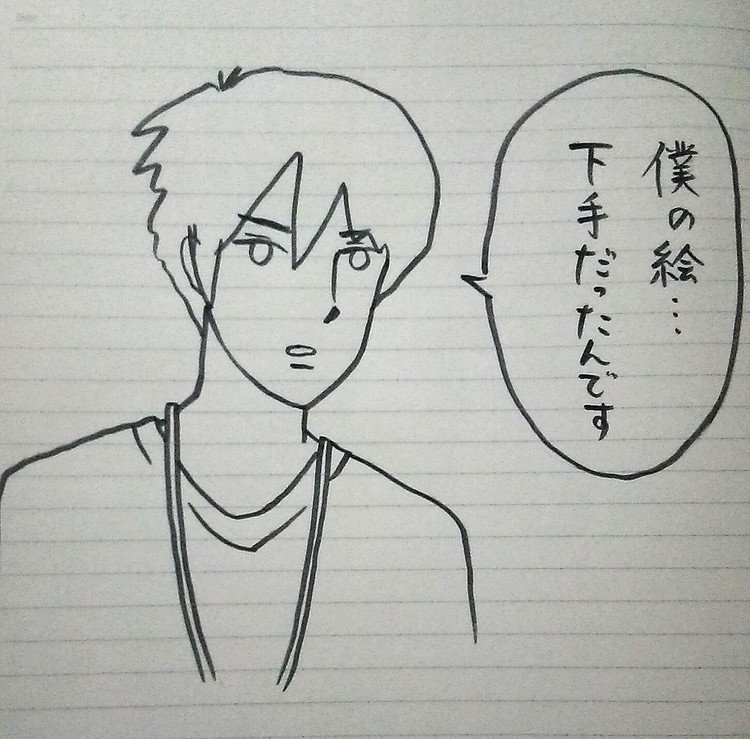 僕の絵…
下手だったんです